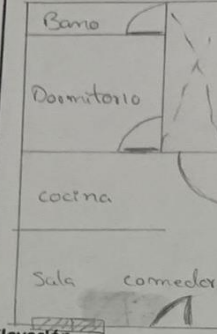 Baño
Dormitorio
cocina
Sala comedor